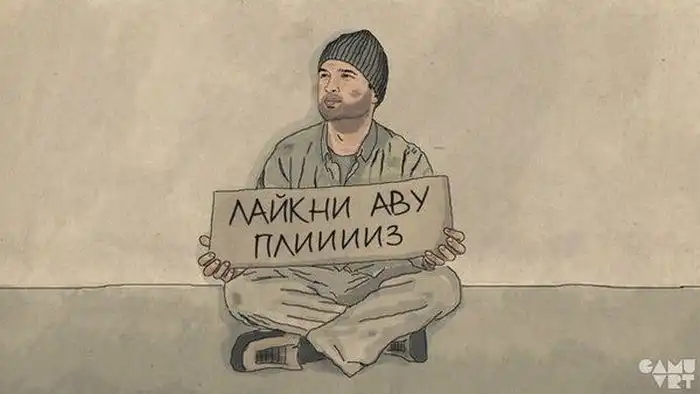 ЛАЙКНИ АВУ
ПЛИИИИЗ
GAMU
VRT